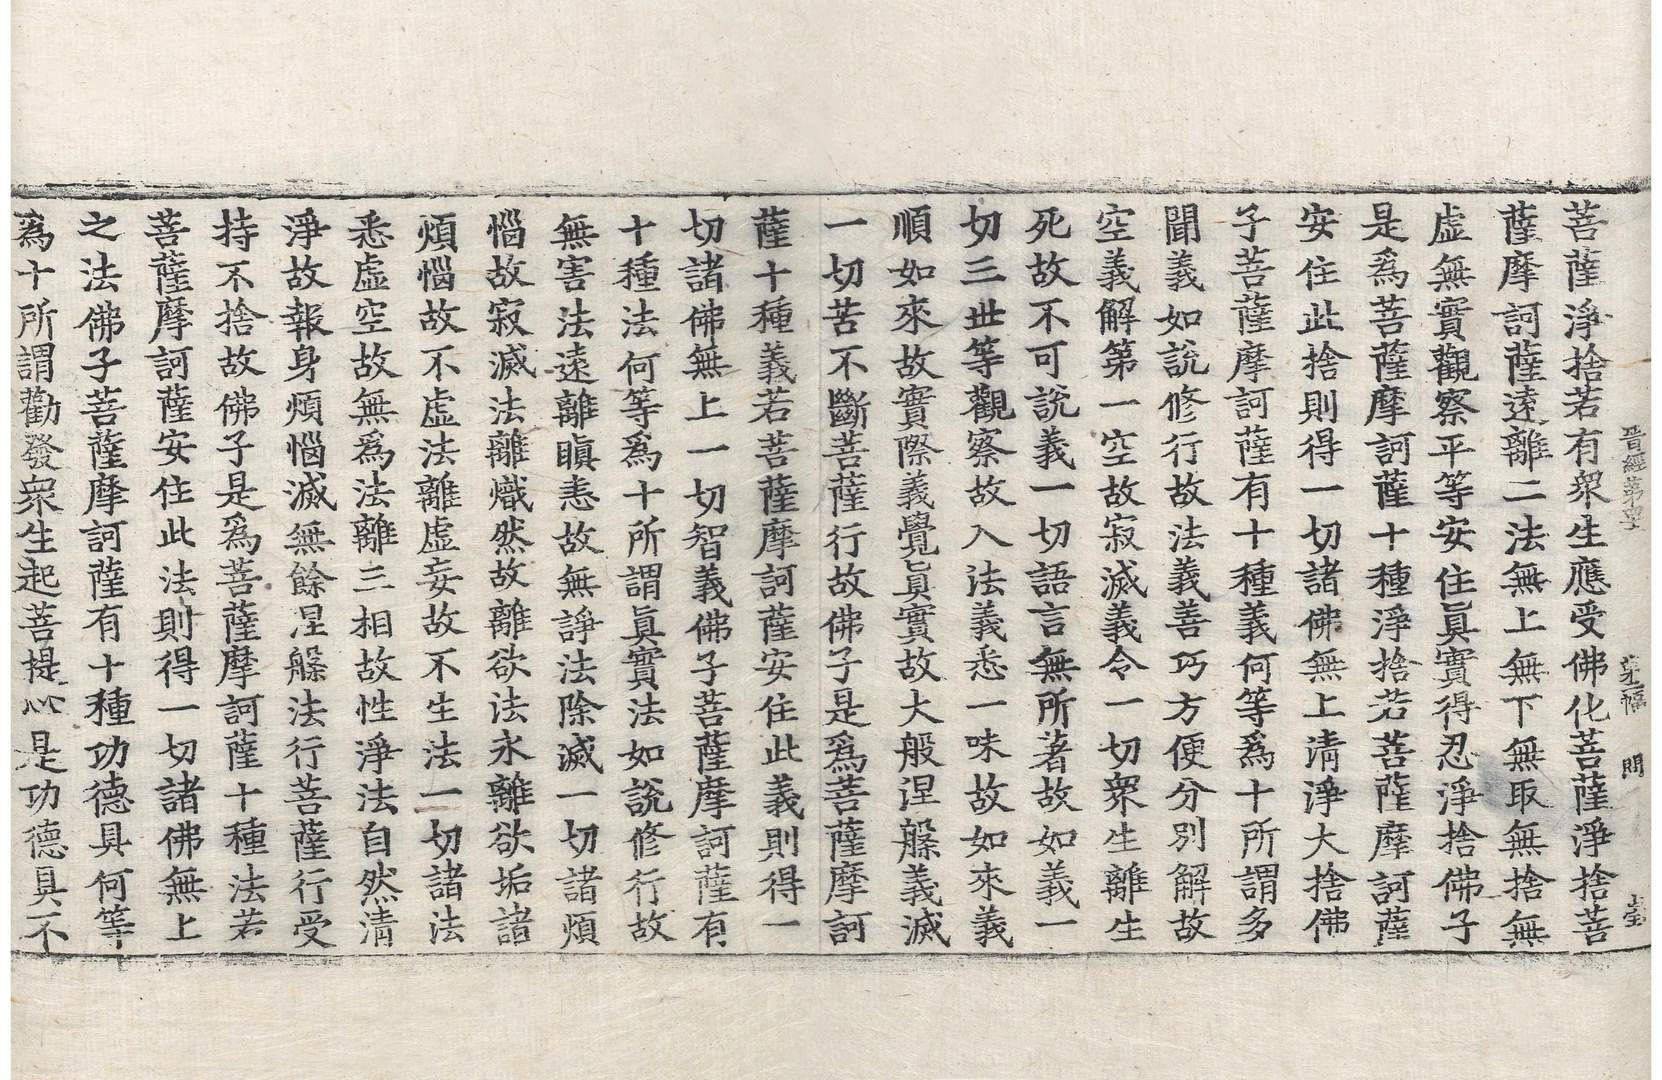 晋經第
菩薩淨捨若有衆生應受佛化菩薩淨捨菩
薩摩訶薩遠離二法無上無下無取無捨無
虛無實觀察平等安住眞實得忍淨捨佛子
是爲菩薩摩訶薩十種淨捨若菩薩摩訶薩
安住此捨則得一切諸佛無上清淨大捨佛
子菩薩摩訶薩有十種義何等爲十所謂多
聞義如說修行故法義善巧方便分別解故
空義解第一空故寂滅義令一切衆生離生
死故不可說義一切語言無所著故如義一
切三世等觀察故入法義悉一味故如來義
順如來故實際義覺眞實故大般涅槃義滅
一切苦不斷菩薩行故佛子是爲菩薩摩訶
薩十種義若菩薩摩訶薩安住此義則得一
切諸佛無上一切智義佛子菩薩摩訶薩有
十種法何等爲十所謂眞實法如說修行故
無害法遠離瞋恚故無諍法除滅一切諸煩
惱故寂滅法離熾然故離欲法永離欲垢諸
煩惱故不虛法離虛妄故不生法一切諸法
悉虛空故無爲法離三相故性淨法自然清
淨故報身煩惱滅無餘涅槃法行菩薩行受
持不捨故佛子是爲菩薩摩訶薩十種法若
菩薩摩訶薩安住此法則得一切諸佛無上
之法佛子菩薩摩訶薩有十種功德具何等
爲十所謂勸發衆生起菩提心是功德具不